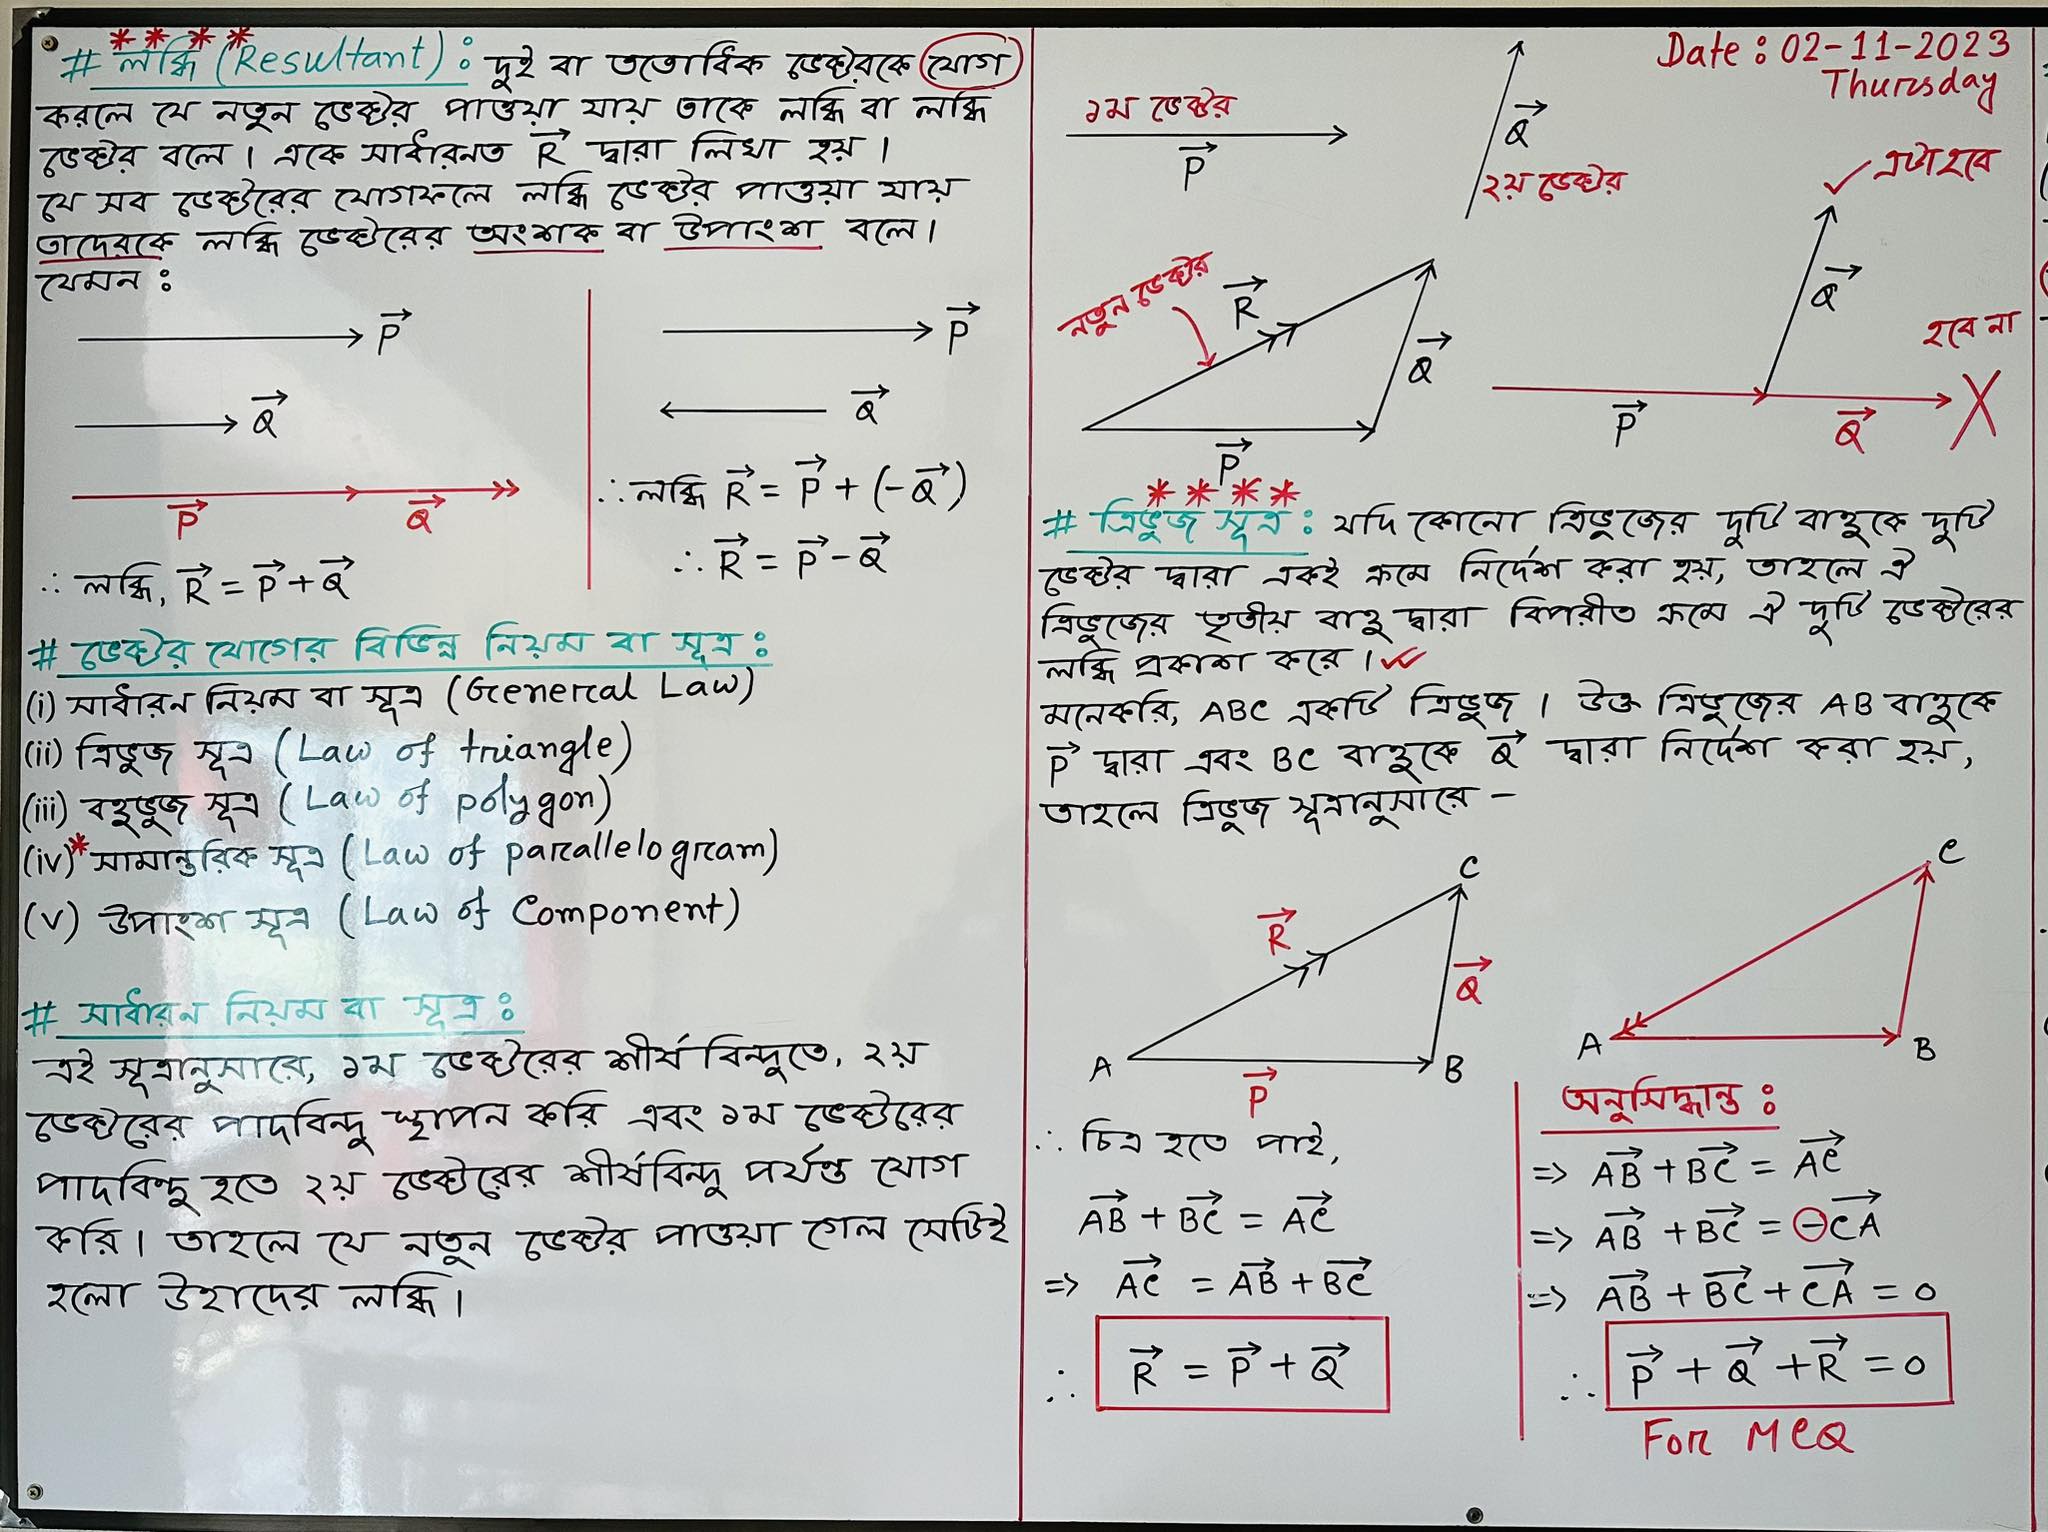 # লব্ধি (Resultant) : দুই বা ততোধিক ভেক্টরকে যোগ
করলে যে নতুন ভেক্টর পাওয়া যায় তাকে লব্ধি বা লব্ধি
ভেক্টর বলে। একে সাধারনত R→ দ্বারা লিখা হয়।
যে সব ভেক্টরের যোগফলে লব্ধি ভেক্টর পাওয়া যায়
তাদেরকে লব্ধি ভেক্টরের অংশক বা উপাংশ বলে।
যেমন :
P→
Q→
P→ Q→
∴ লব্ধি, R→ = P→ + Q→
P→
Q→
∴ লব্ধি R→ = P→ + (-Q→)
∴ R→ = P→ - Q→
# ভেক্টর যোগের বিভিন্ন নিয়ম বা সূত্র :
(i) সাধারন নিয়ম বা সূত্র (General Law)
(ii) ত্রিভুজ সূত্র (Law of triangle)
(iii) বহুভুজ সূত্র (Law of polygon)
(iv)* সামান্তরিক সূত্র (Law of parallelogram)
(v) উপাংশ সূত্র (Law of Component)
# সাধারন নিয়ম বা সূত্র :
এই সূত্রানুসারে, ১ম ভেক্টরের শীর্ষ বিন্দুতে, ২য়
ভেক্টরের পাদবিন্দু স্থাপন করি এবং ১ম ভেক্টরের
পাদবিন্দু হতে ২য় ভেক্টরের শীর্ষবিন্দু পর্যন্ত যোগ
করি। তাহলে যে নতুন ভেক্টর পাওয়া গেল সেটিই
হলো উহাদের লব্ধি।
Date : 02-11-2023
Thursday
১ম ভেক্টর
P→
Q→
২য় ভেক্টর
এটা হবে
Q→
হবে না
P→ Q→ X
নতুন ভেক্টর
R→
Q→
P→
# ত্রিভুজ সূত্র : যদি কোনো ত্রিভুজের দুটি বাহুকে দুটি
ভেক্টর দ্বারা একই ক্রমে নির্দেশ করা হয়, তাহলে ঐ
ত্রিভুজের তৃতীয় বাহু দ্বারা বিপরীত ক্রমে ঐ দুটি ভেক্টরের
লব্ধি প্রকাশ করে।
মনেকরি, ABC একটি ত্রিভুজ। উক্ত ত্রিভুজের AB বাহুকে
P→ দ্বারা এবং BC বাহুকে Q→ দ্বারা নির্দেশ করা হয়,
তাহলে ত্রিভুজ সূত্রানুসারে –
C
R→
Q→
A B
P→
∴ চিত্র হতে পাই,
AB→ + BC→ = AC→
=> AC→ = AB→ + BC→
∴ R→ = P→ + Q→
C
A B
অনুসিদ্ধান্ত :
=> AB→ + BC→ = AC→
=> AB→ + BC→ = -CA→
=> AB→ + BC→ + CA→ = 0
∴ P→ + Q→ + R→ = 0
For MCQ